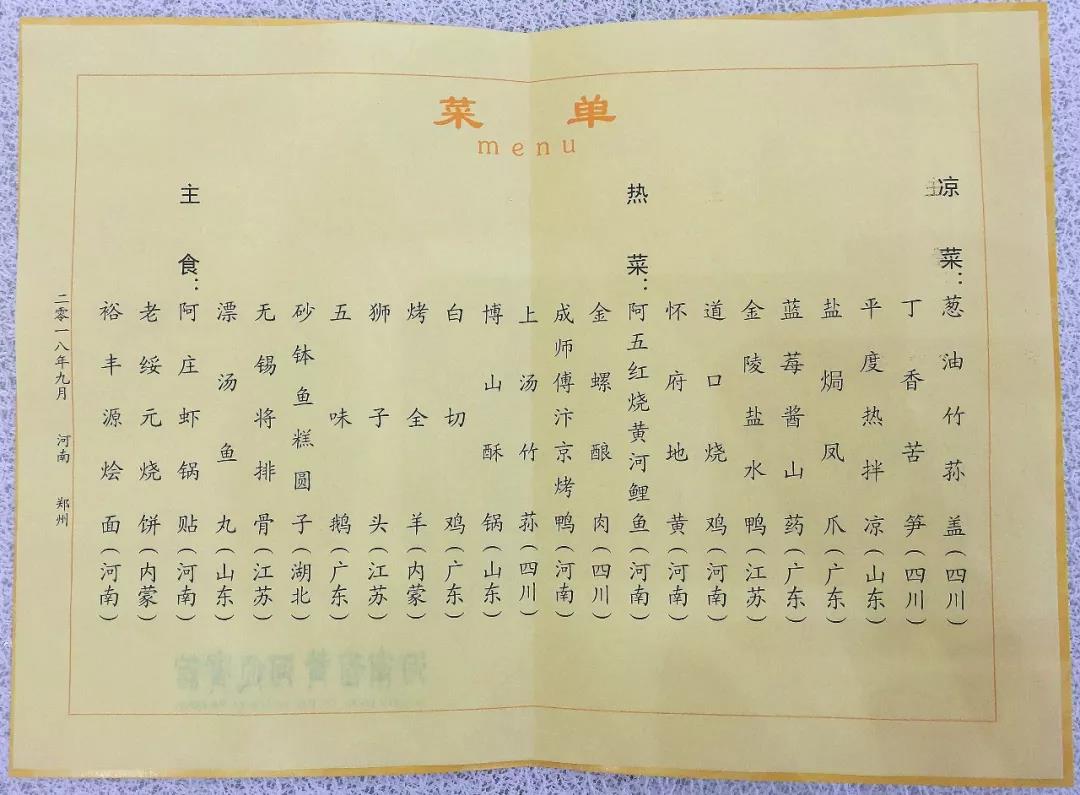 菜单
menu
凉菜：
葱油竹荪盖（四川）
丁香苦笋（四川）
平度热拌凉（山东）
盐焗凤爪（广东）
蓝莓酱山药（广东）
金陵盐水鸭（江苏）
道口烧鸡（河南）
怀府地黄（河南）
热菜：
阿五红烧黄河鲤鱼（河南）
金螺酿肉（四川）
成师傅汴京烤鸭（河南）
上汤竹荪（四川）
博山酥锅（山东）
白切鸡（广东）
烤全羊（内蒙）
狮子头（江苏）
五味鹅（广东）
砂钵鱼糕圆子（湖北）
无锡将排骨（江苏）
漂汤鱼丸（山东）
主食：
阿庄虾锅贴（河南）
老绥元烧饼（内蒙）
裕丰源烩面（河南）
二零一八年九月 河南 郑州